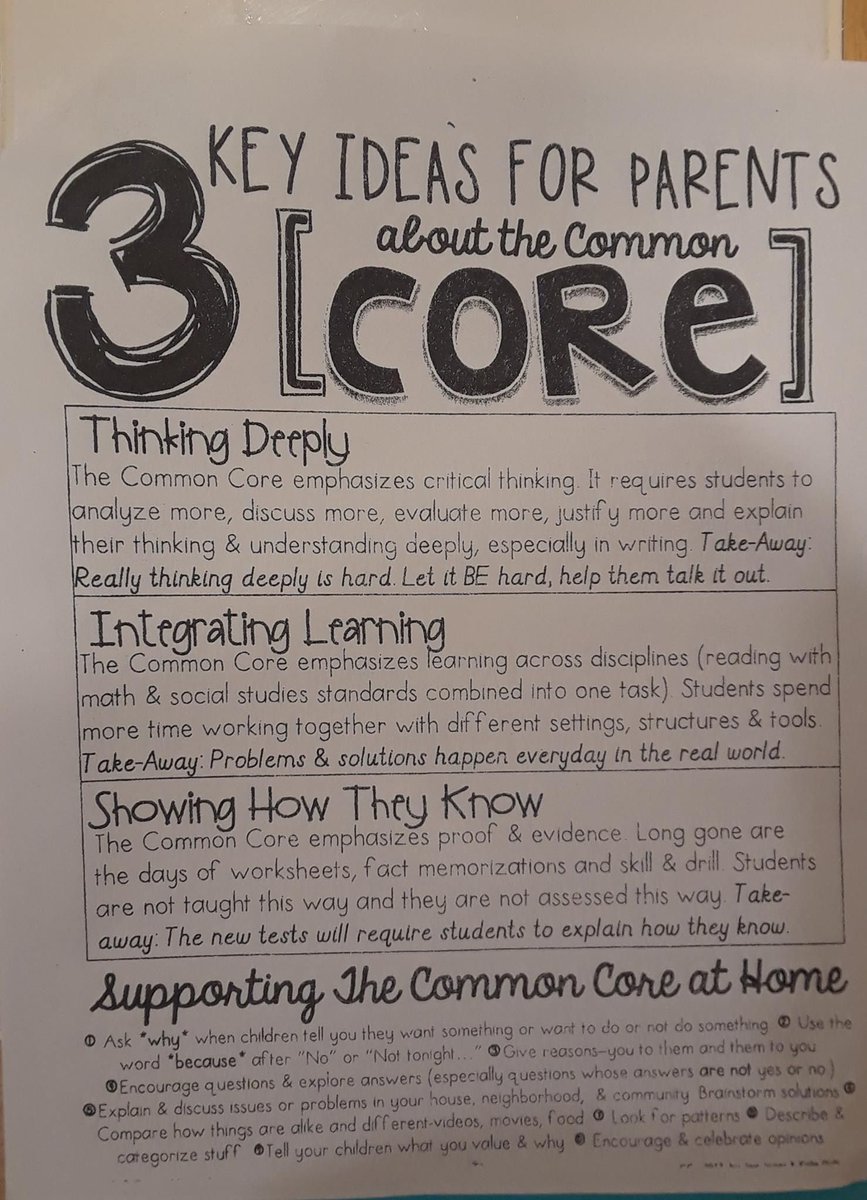 3 KEY IDEAS FOR PARENTS
about the Common
[CORE]
Thinking Deeply
The Common Core emphasizes critical thinking. It requires students to
analyze more, discuss more, evaluate more, justify more and explain
their thinking & understanding deeply, especially in writing. Take-Away:
Really thinking deeply is hard. Let it BE hard, help them talk it out.
Integrating Learning
The Common Core emphasizes learning across disciplines (reading with
math & social studies standards combined into one task). Students spend
more time working together with different settings, structures & tools.
Take-Away: Problems & solutions happen everyday in the real world.
Showing How They Know
The Common Core emphasizes proof & evidence. Long gone are
the days of worksheets, fact memorizations and skill & drill. Students
are not taught this way and they are not assessed this way. Take-
away: The new tests will require students to explain how they know.
Supporting The Common Core at Home
① Ask *why* when children tell you they want something or want to do or not do something ② Use the
word *because* after "No" or "Not tonight..." ③Give reasons-you to them and them to you
Encourage questions & explore answers (especially questions whose answers are not yes or no)
Explain & discuss issues or problems in your house, neighborhood, & community Brainstorm solutions
Compare how things are alike and different-videos, movies, food Look for patterns Describe &
categorize stuff Tell your children what you value & why Encourage & celebrate opinions